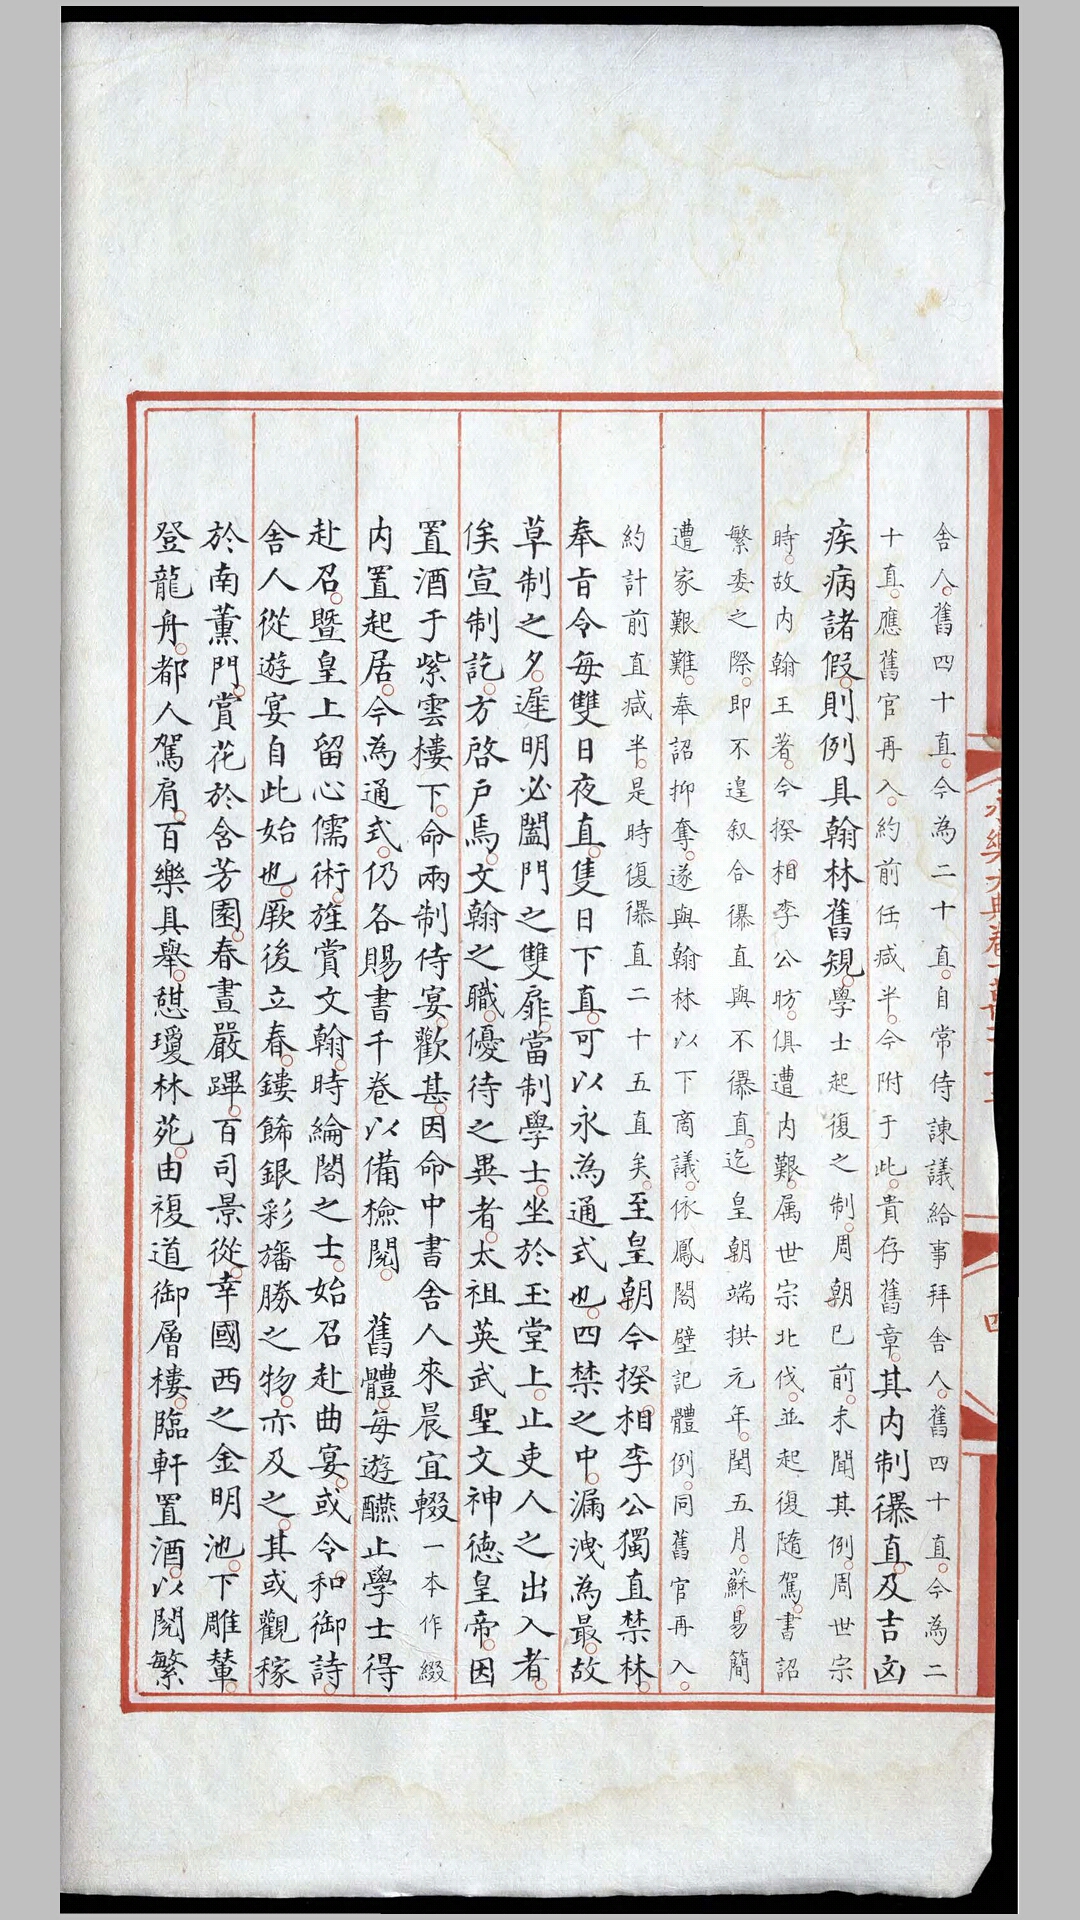 舍人舊四十直今為二十直自常侍諫議給事拜舍人舊四十直今為二
十直應舊官再入約前任減半今附于此貴存舊章其内制㬥直及吉凶
疾病諸假則例具翰林舊規學士起復之制周朝已前未聞其例周世宗
時故内翰王著今揆相李公昉俱遭内艱属世宗北伐並起復隨駕書詔
繁委之際即不遑叙合㬥直與不㬥直迄皇朝端拱元年閏五月蘇易簡
遭家艱難奉詔抑奪遂與翰林以下商議依鳳閣壁記體例同舊官再入
約計前直減半是時復㬥直二十五直矣至皇朝今揆相李公獨直禁林
奉旨令每雙日夜直隻日下直可以永為通式也四禁之中漏洩為最故
草制之夕遲明必闔門之雙扉當制學士坐於玉堂上止吏人之出入者
俟宣制訖方啓户焉文翰之職優待之異者太祖英武聖文神德皇帝因
置酒于紫雲樓下命兩制侍宴歡甚因命中書舍人來晨宜輟一本作綴
内置起居今為通式仍各賜書千卷以備檢閱 舊體每遊醼止學士得
赴召暨皇上留心儒術旌賞文翰時綸閣之士始召赴曲宴或令和御詩
舍人從遊宴自此始也厥後立春鏤餙銀彩旛勝之物亦及之其或觀稼
於南薰門賞花於含芳園春晝嚴蹕百司景從幸國西之金明池下雕輦
登龍舟都人駕肩百樂具舉憇瓊林苑由複道御層樓臨軒置酒以閱繁
永樂大典卷
四